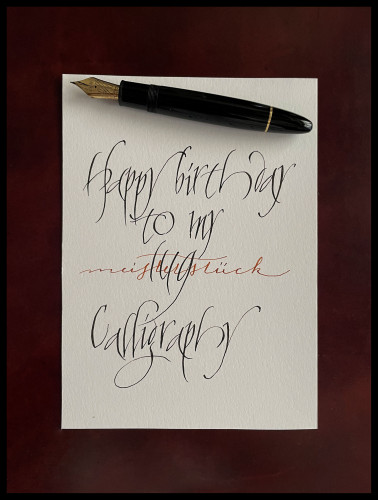 Happy birthday
to my
meisterstück
149
Calligraphy